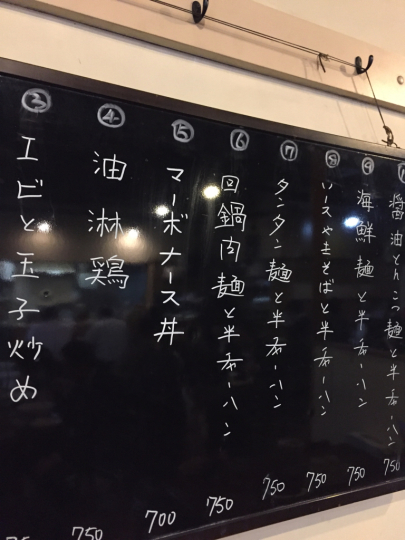 ③ エビと玉子炒め
④ 油淋鶏 750
⑤ マーボナース丼 700
⑥ 回鍋肉麺と半チャーハン 750
⑦ タンタン麺と半チャーハン 750
⑧ ソースやきそばと半チャーハン 750
⑨ 海鮮麺と半チャーハン 750
醤油とんこつ麺と半チャーハン 750